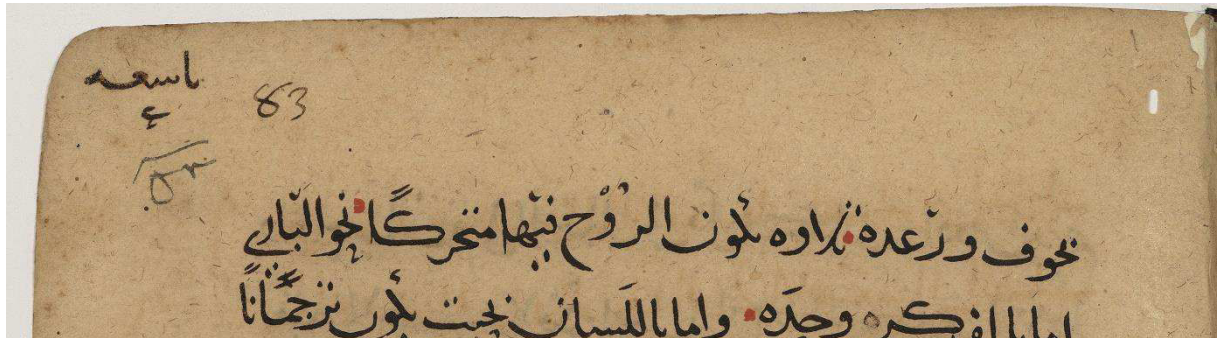 تاسعه
83
بخوف ورعدة تلاوه يكون الروح فيها متحركًا نحو الباري
اما بالفكره وحده واما باللسان بحيث يكون ترجمانًا